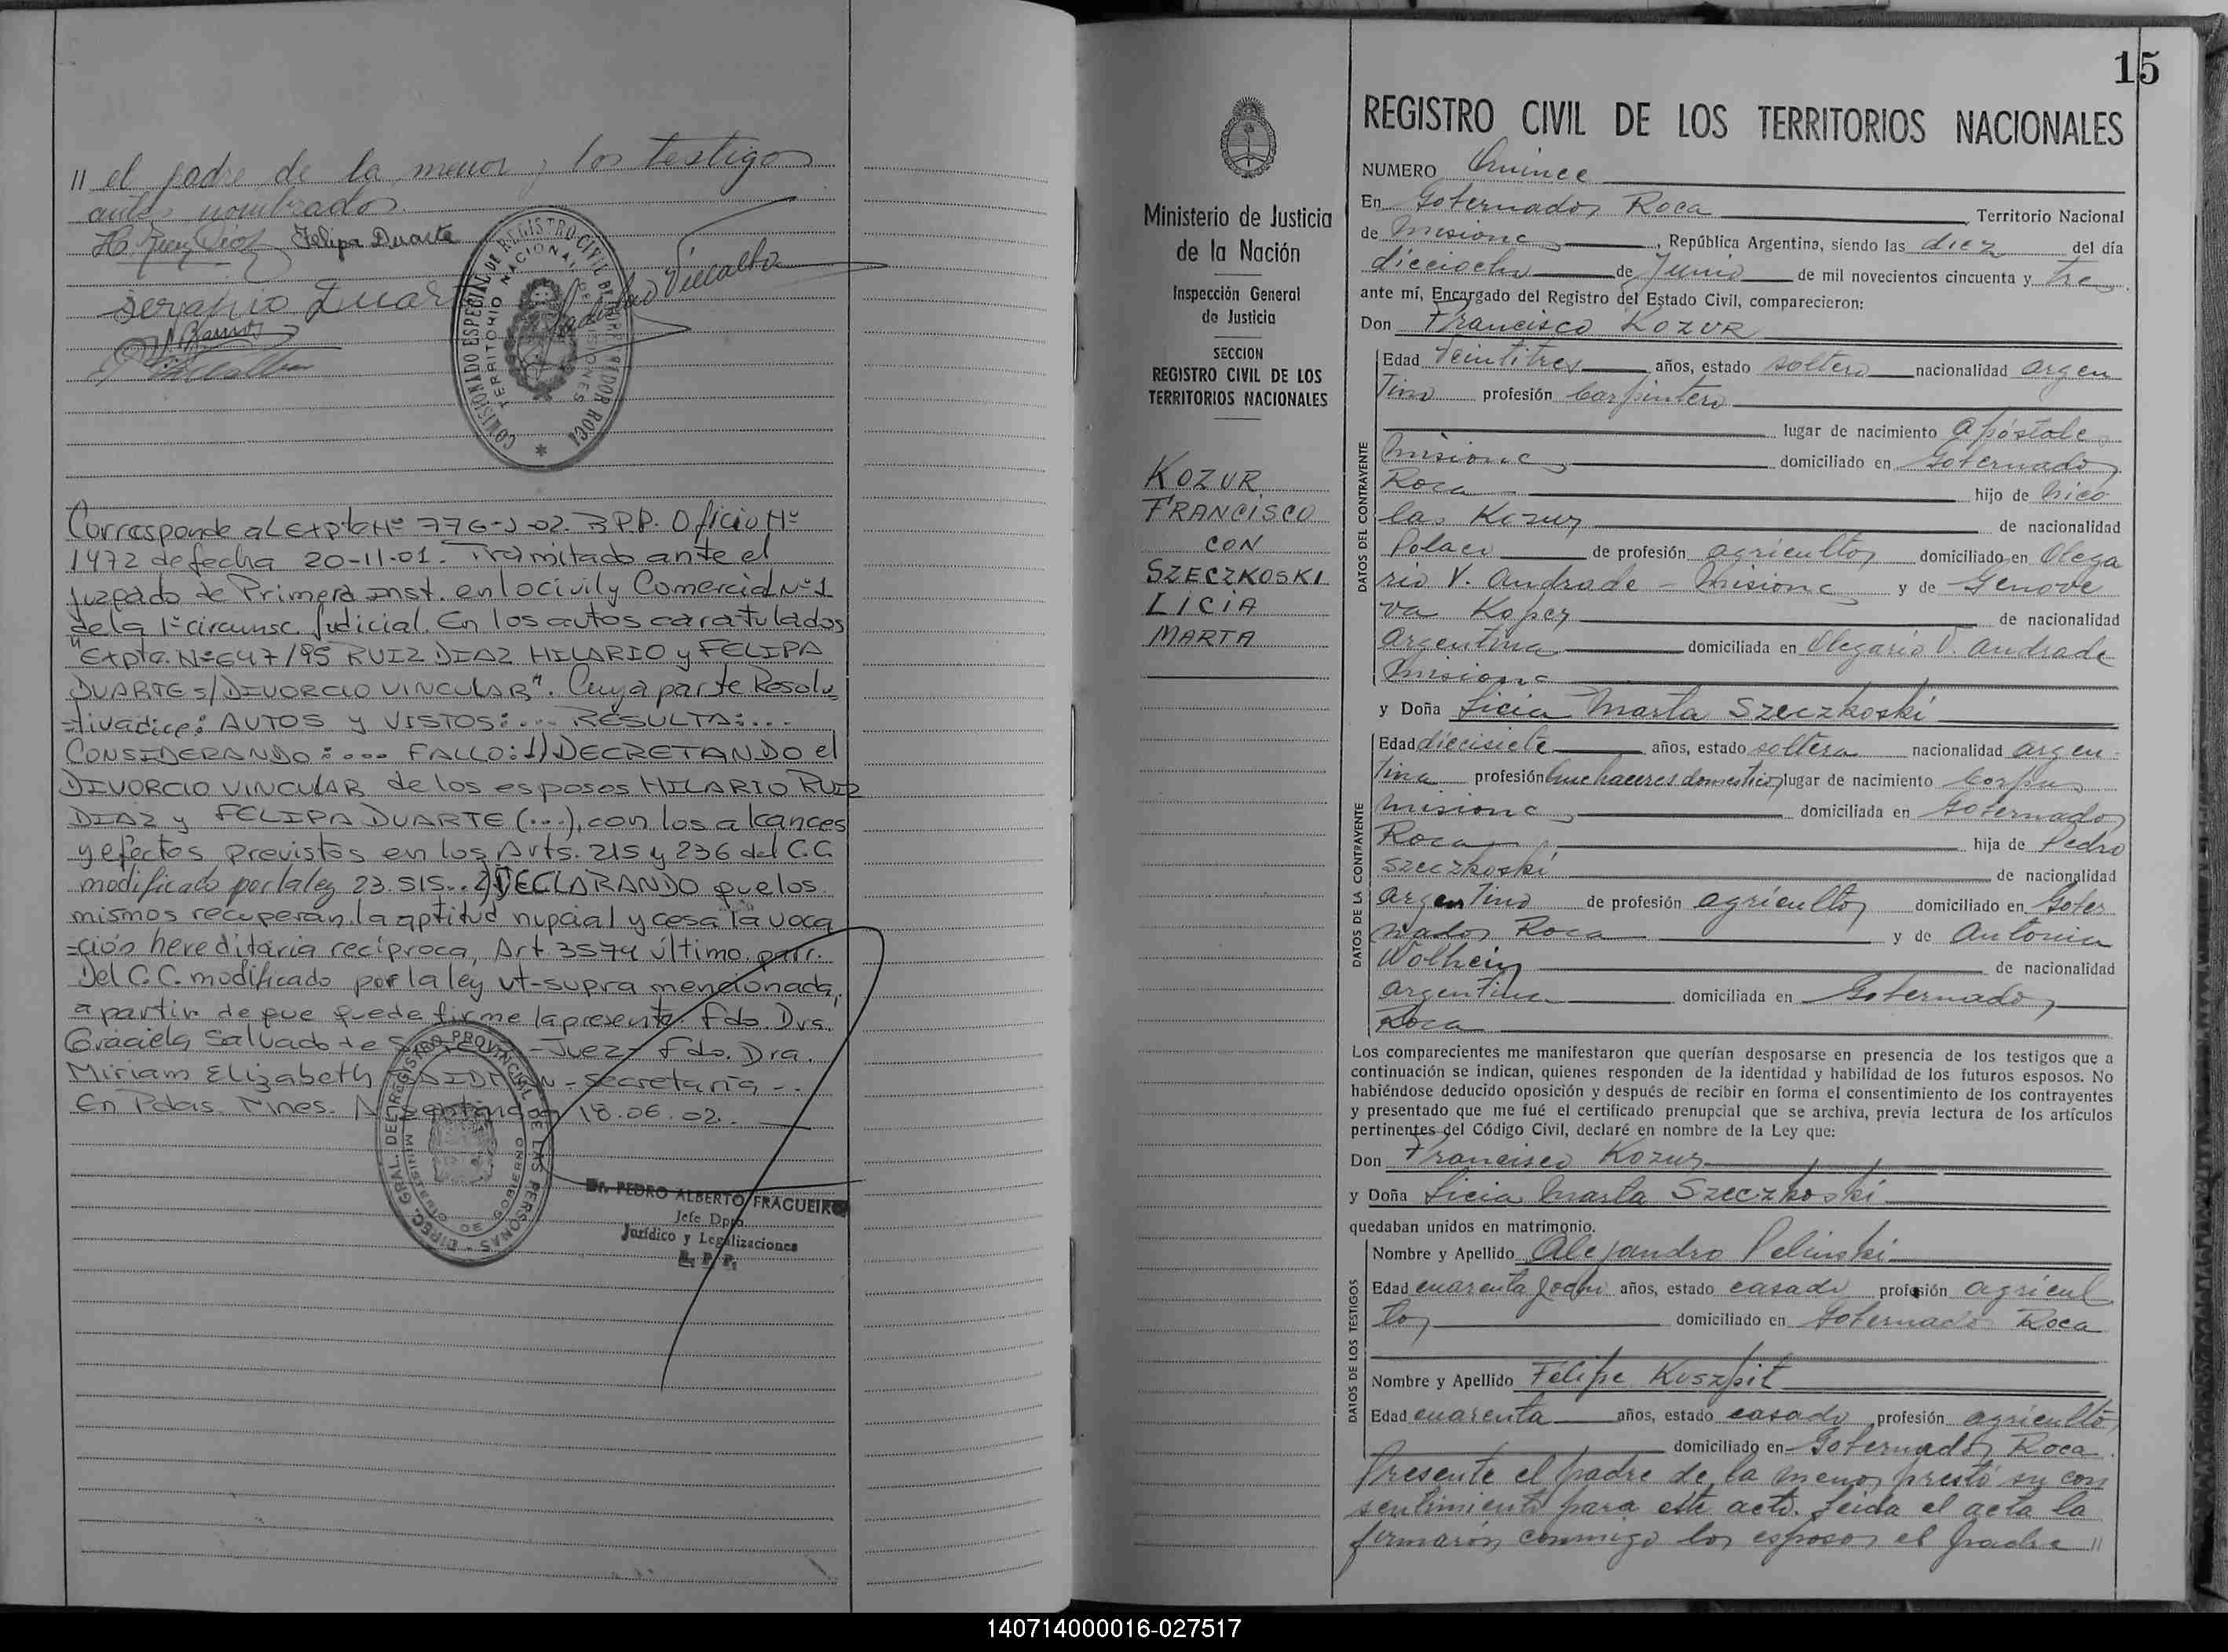 // el padre de la menor y los testigos
antes nombrados.
H. Ruiz Diaz Felipa Duarte
Serapio Duarte
Ladislao Villalba
COMISIONADO ESPECIAL DE REGISTRO CIVIL DE GOBERNADOR ROCA
TERRITORIO NACIONAL DE MISIONES
Corresponde al Expte Nº 776-J-02. RPP. Oficio Nº
1472 de fecha 20-11-01. Tramitado ante el
Juzgado de Primera Inst. en lo civil y Comercial Nº 1
de la 1ª circunsc. Judicial. En los autos caratulados
"Expte. Nº 647/95 RUIZ DIAZ HILARIO y FELIPA
DUARTE s/DIVORCIO VINCULAR". Cuya parte Resolu-
-tiva dice: AUTOS y VISTOS:... RESULTA:...
CONSIDERANDO:... FALLO: 1) DECRETANDO el
DIVORCIO VINCULAR de los esposos HILARIO RUIZ
DIAZ y FELIPA DUARTE (...), con los alcances
y efectos previstos en los Arts. 215 y 236 del C.C.
modificado por la ley 23.515.. 2) DECLARANDO que los
mismos recuperan la aptitud nupcial y cesa la voca
-ción hereditaria recíproca, Art. 3574 último parr.
Del C.C. modificado por la ley ut-supra mencionada,
a partir de que quede firme la presente. Fdo. Dra.
Graciela Salvado de -Juez- Fdo. Dra.
Miriam Elizabeth - secretaria -.
En Pdas. Mnes. Argentina 18.06.02.
DIREC. GRAL. DEL REGISTRO PROVINCIAL DE LAS PERSONAS
MINISTERIO DE GOBIERNO
Dr. PEDRO ALBERTO FRAGUEIRO
Jefe Dpto.
Jurídico y Legalizaciones
R. P. P.
15
REGISTRO CIVIL DE LOS TERRITORIOS NACIONALES
Ministerio de Justicia
de la Nación
Inspección General
de Justicia
SECCION
REGISTRO CIVIL DE LOS
TERRITORIOS NACIONALES
KOZUR
FRANCISCO
CON
SZECZKOSKI
LICIA
MARTA
NUMERO Quince
En Gobernador Roca Territorio Nacional
de Misiones, República Argentina, siendo las diez del día
dieciocho de Junio de mil novecientos cincuenta y tres
ante mí, Encargado del Registro del Estado Civil, comparecieron:
Don Francisco KOZUR
DATOS DEL CONTRAYENTE
Edad Veintitres años, estado soltero nacionalidad argen
tino profesión Carpintero
lugar de nacimiento Apóstoles
Misiones domiciliado en Gobernador
Roca hijo de Nico
las Kozur de nacionalidad
Polaco de profesión agricultor domiciliado en Olega
rio V. Andrade - Misiones y de Genove
va Koper de nacionalidad
Argentina domiciliada en Olegario V. Andrade
Misiones
y Doña Licia Marta Szeczkoski
DATOS DE LA CONTRAYENTE
Edad diecisiete años, estado soltera nacionalidad argen-
tina profesión Quehaceres domesticos lugar de nacimiento Corpus
Misiones domiciliada en Gobernador
Roca hija de Pedro
Szeczkoski de nacionalidad
argentino de profesión agricultor domiciliado en Gober
nador Roca y de Antonia
Wolhein de nacionalidad
argentina domiciliada en Gobernador
Roca
Los comparecientes me manifestaron que querían desposarse en presencia de los testigos que a
continuación se indican, quienes responden de la identidad y habilidad de los futuros esposos. No
habiéndose deducido oposición y después de recibir en forma el consentimiento de los contrayentes
y presentado que me fué el certificado prenupcial que se archiva, previa lectura de los artículos
pertinentes del Código Civil, declaré en nombre de la Ley que:
Don Francisco Kozur
y Doña Licia Marta Szeczkoski
quedaban unidos en matrimonio.
DATOS DE LOS TESTIGOS
Nombre y Apellido Alejandro Pelinski
Edad cuarenta y ocho años, estado casado profesión agricul
tor domiciliado en Gobernador Roca
Nombre y Apellido Felipe Kuszpit
Edad cuarenta años, estado casado profesión agricultor
domiciliado en Gobernador Roca.
Presente el padre de la menor prestó su con
sentimiento para este acto. Leida el acta la
firmaron conmigo los esposos el padre //
140714000016-027517